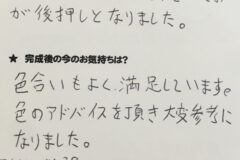 が後押しとなりました。
★ 完成後の今のお気持ちは?
色合いもよく、満足しています。
色のアドバイスを頂き大変参考に
なりました。